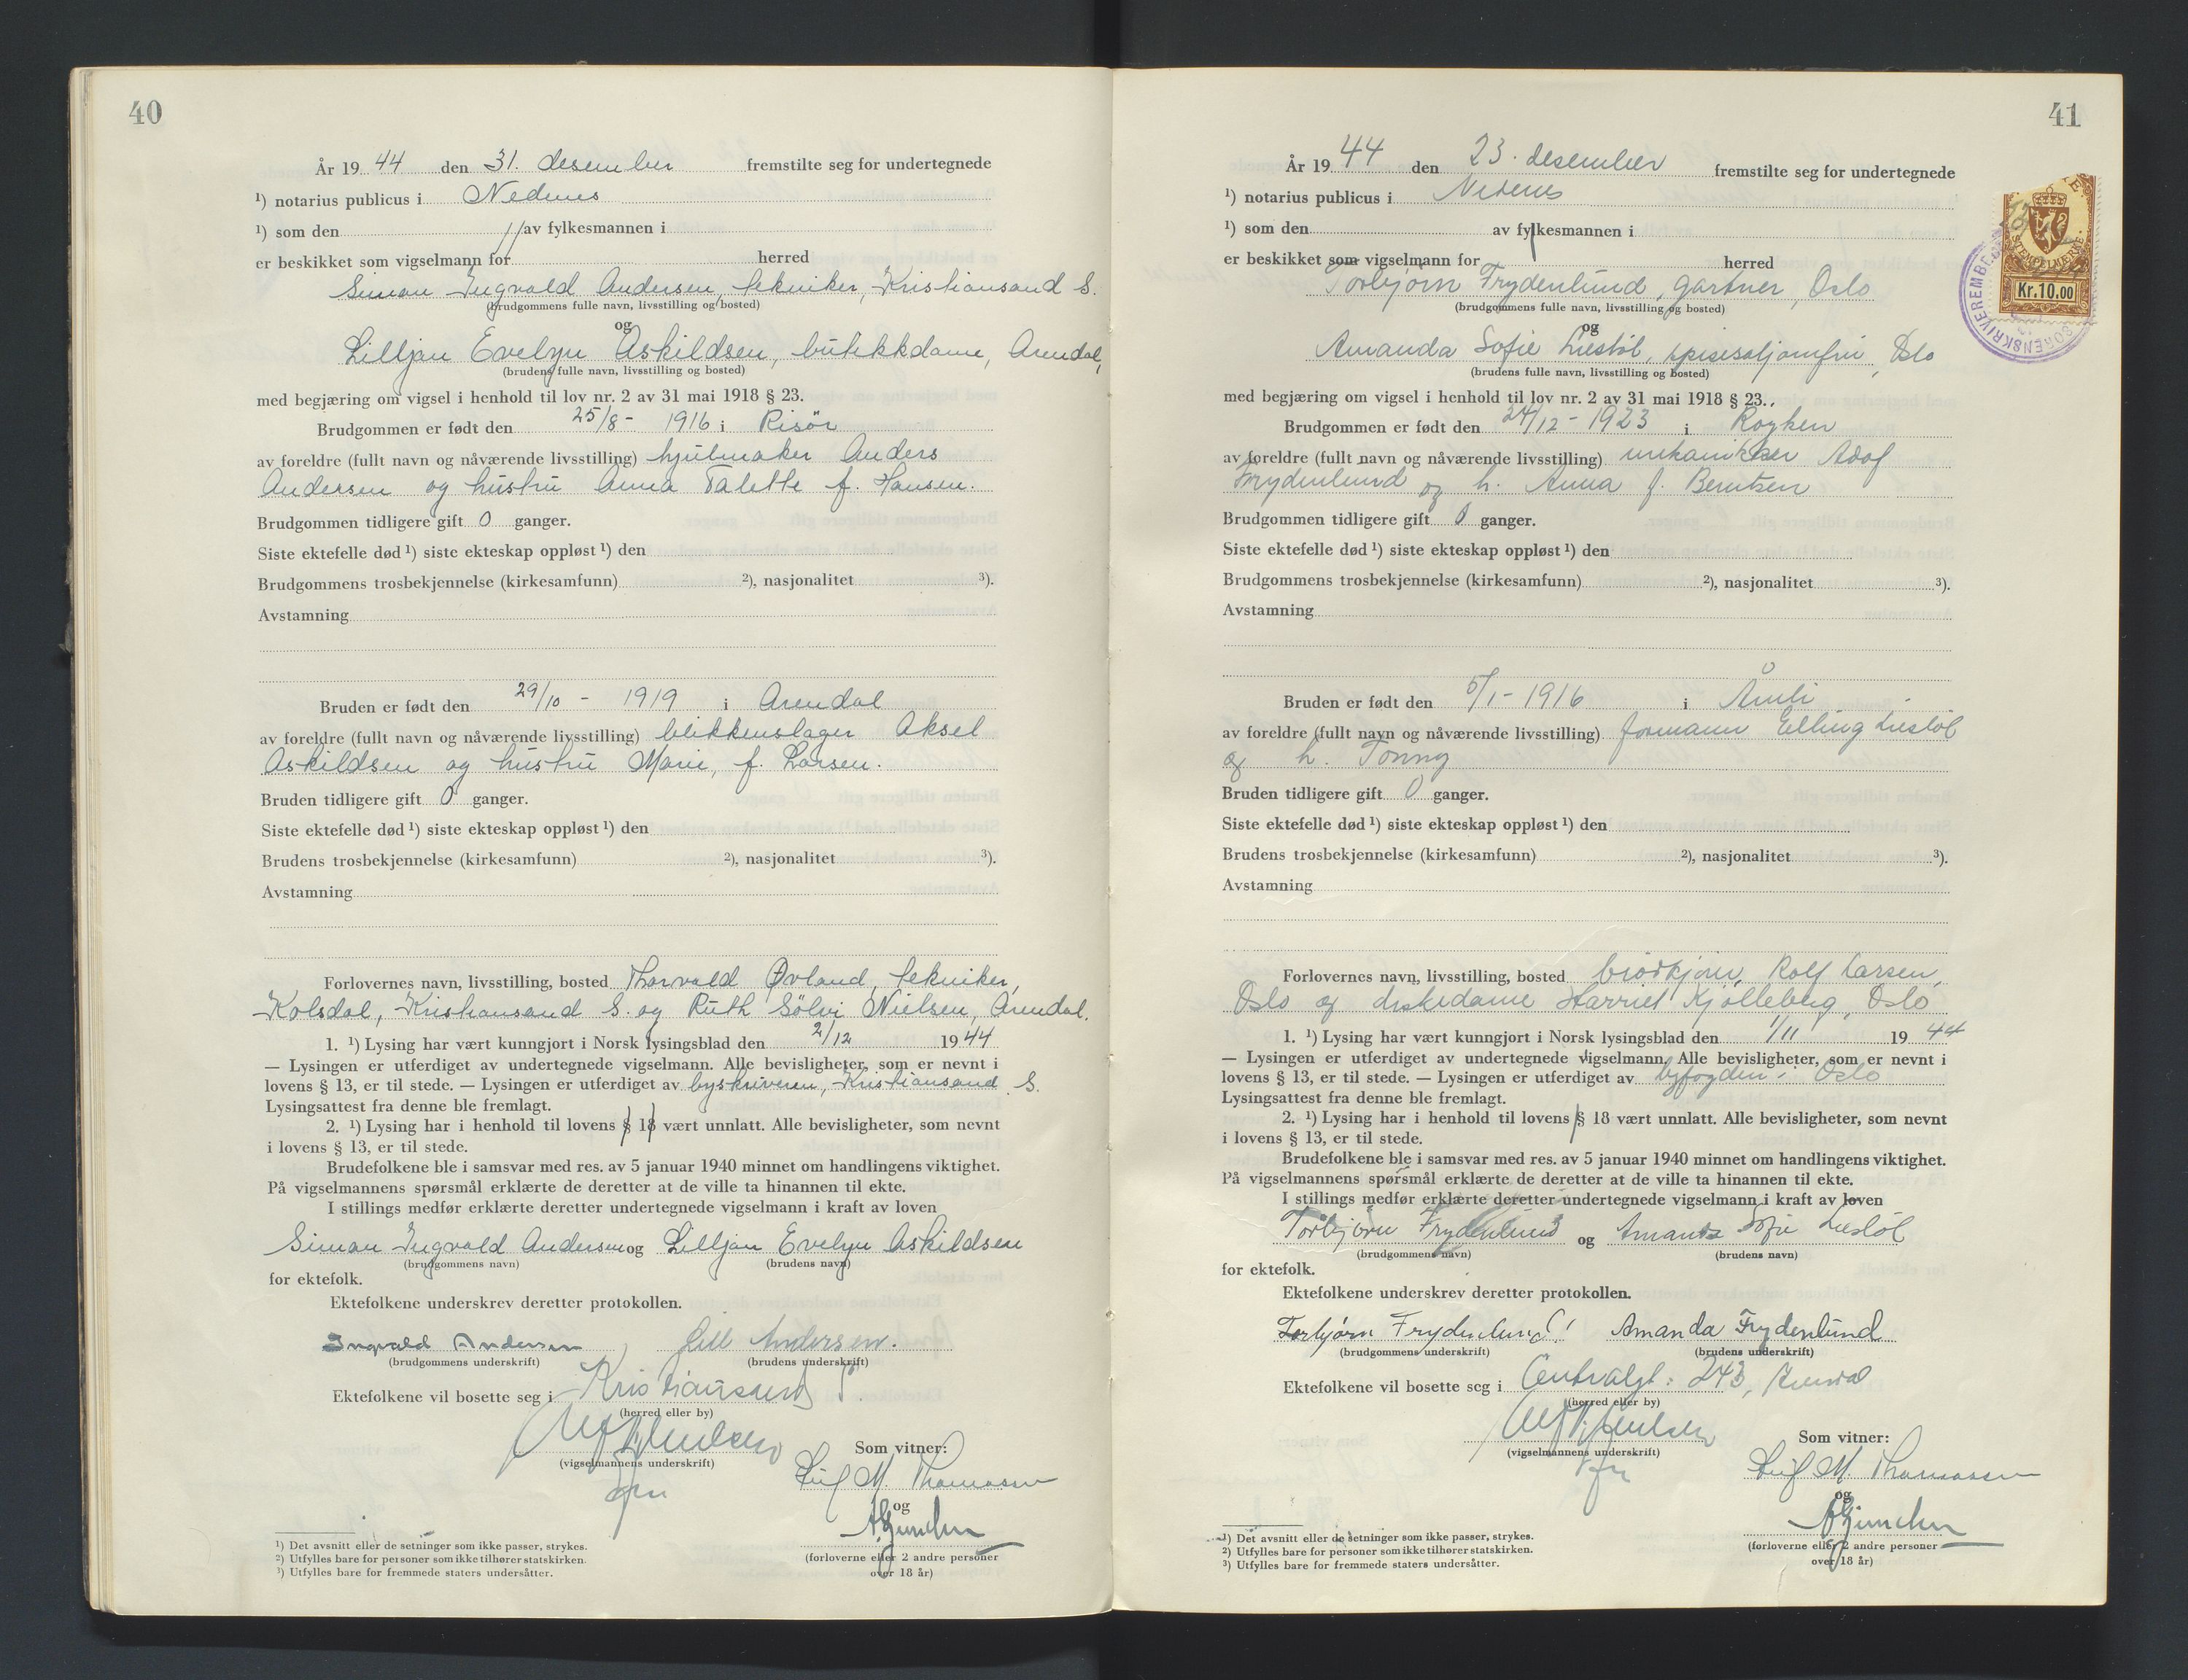 40
År 19 44 den 31. desember fremstilte seg for undertegnede
¹) notarius publicus i Nedenes
¹) som den av fylkesmannen i
er beskikket som vigselmann for herred
Simon Ingvald Andersen, tekniker, Kristiansand S.
(brudgommens fulle navn, livsstilling og bosted)
og
Lilljan Evelyn Askildsen, butikkdame, Arendal,
(brudens fulle navn, livsstilling og bosted)
med begjæring om vigsel i henhold til lov nr. 2 av 31 mai 1918 § 23.
Brudgommen er født den 25/8 - 1916 i Risør
av foreldre (fullt navn og nåværende livsstilling) hjulmaker Anders
Andersen og hustru Anna Talette f. Hansen.
Brudgommen tidligere gift 0 ganger.
Siste ektefelle død ¹) siste ekteskap oppløst ¹) den
Brudgommens trosbekjennelse (kirkesamfunn) ²), nasjonalitet ³).
Avstamning
Bruden er født den 29/10 - 1919 i Arendal
av foreldre (fullt navn og nåværende livsstilling) blikkenslager Aksel
Askildsen og hustru Marie, f. Larsen.
Bruden tidligere gift 0 ganger.
Siste ektefelle død ¹) siste ekteskap oppløst ¹) den
Brudens trosbekjennelse (kirkesamfunn) ²), nasjonalitet ³).
Avstamning
Forlovernes navn, livsstilling, bosted Thorvald Øvland, tekniker,
Kolsdal, Kristiansand S. og Ruth Sølvi Nielsen, Arendal.
1. ¹) Lysing har vært kunngjort i Norsk lysingsblad den 2/12 19 44
— Lysingen er utferdiget av undertegnede vigselmann. Alle bevisligheter, som er nevnt i
lovens § 13, er til stede. — Lysingen er utferdiget av byskriveren, Kristiansand S.
Lysingsattest fra denne ble fremlagt.
2. ¹) Lysing har i henhold til lovens § 18 vært unnlatt. Alle bevisligheter, som nevnt
i lovens § 13, er til stede.
Brudefolkene ble i samsvar med res. av 5 januar 1940 minnet om handlingens viktighet.
På vigselmannens spørsmål erklærte de deretter at de ville ta hinannen til ekte.
I stillings medfør erklærte deretter undertegnede vigselmann i kraft av loven
Simon Ingvald Andersen og Lilljan Evelyn Askildsen
(brudgommens navn) (brudens navn)
for ektefolk.
Ektefolkene underskrev deretter protokollen.
Ingvald Andersen Lill Andersen.
(brudgommens underskrift) (brudens underskrift)
Ektefolkene vil bosette seg i Kristiansand S.
(herred eller by)
Som vitner:
(vigselmannens underskrift)
Leif M. Thomassen
og
(forloverne eller 2 andre personer
over 18 år)
¹) Det avsnitt eller de setninger som ikke passer, strykes.
²) Utfylles bare for personer som ikke tilhører statskirken.
³) Utfylles bare for fremmede staters undersåtter.
41
År 19 44 den 23. desember fremstilte seg for undertegnede
¹) notarius publicus i Nedenes
¹) som den av fylkesmannen i
er beskikket som vigselmann for herred
Torbjørn Frydenlund, gartner, Oslo
(brudgommens fulle navn, livsstilling og bosted)
og
Amanda Sofie Liestøl, spisesaljomfru, Oslo
(brudens fulle navn, livsstilling og bosted)
STEMPELMERKE
Kr.10.00
SORENSKRIVEREMBE
med begjæring om vigsel i henhold til lov nr. 2 av 31 mai 1918 § 23.
Brudgommen er født den 24/12 - 1923 i Røyken
av foreldre (fullt navn og nåværende livsstilling) mekaniker Adolf
Frydenlund og h. Anna f. Berntsen
Brudgommen tidligere gift 0 ganger.
Siste ektefelle død ¹) siste ekteskap oppløst ¹) den
Brudgommens trosbekjennelse (kirkesamfunn) ²), nasjonalitet ³).
Avstamning
Bruden er født den 5/1 - 1916 i Åmli
av foreldre (fullt navn og nåværende livsstilling) formann Elling Liestøl
og h. Tonny
Bruden tidligere gift 0 ganger.
Siste ektefelle død ¹) siste ekteskap oppløst ¹) den
Brudens trosbekjennelse (kirkesamfunn) ²), nasjonalitet ³).
Avstamning
Forlovernes navn, livsstilling, bosted brødkjører, Rolf Larsen,
Oslo og diskedame Harriet Kjølleberg, Oslo
1. ¹) Lysing har vært kunngjort i Norsk lysingsblad den 1/11 19 44
— Lysingen er utferdiget av undertegnede vigselmann. Alle bevisligheter, som er nevnt i
lovens § 13, er til stede. — Lysingen er utferdiget av byfogden i Oslo
Lysingsattest fra denne ble fremlagt.
2. ¹) Lysing har i henhold til lovens § 18 vært unnlatt. Alle bevisligheter, som nevnt
i lovens § 13, er til stede.
Brudefolkene ble i samsvar med res. av 5 januar 1940 minnet om handlingens viktighet.
På vigselmannens spørsmål erklærte de deretter at de ville ta hinannen til ekte.
I stillings medfør erklærte deretter undertegnede vigselmann i kraft av loven
Torbjørn Frydenlund og Amanda Sofie Liestøl
(brudgommens navn) (brudens navn)
for ektefolk.
Ektefolkene underskrev deretter protokollen.
Torbjørn Frydenlund! Amanda Frydenlund
(brudgommens underskrift) (brudens underskrift)
Ektefolkene vil bosette seg i Centralgt. 243, Arendal
(herred eller by)
Som vitner:
(vigselmannens underskrift)
Leif M. Thomassen
og
(forloverne eller 2 andre personer
over 18 år)
¹) Det avsnitt eller de setninger som ikke passer, strykes.
²) Utfylles bare for personer som ikke tilhører statskirken.
³) Utfylles bare for fremmede staters undersåtter.